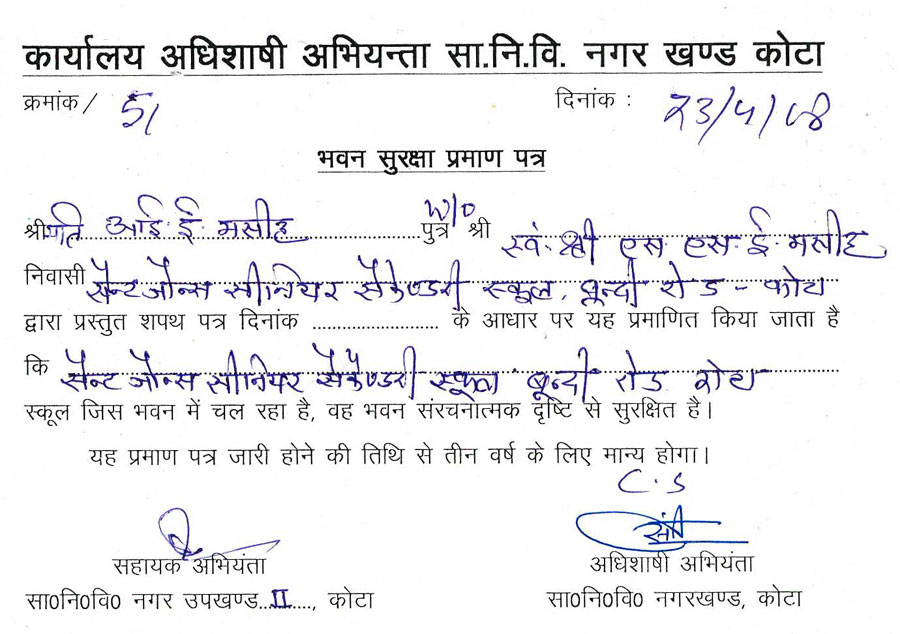 कार्यालय अधिशाषी अभियन्ता सा.नि.वि. नगर खण्ड कोटा
क्रमांक / 51 दिनांक : 23/4/08
भवन सुरक्षा प्रमाण पत्र
श्रीमति आई ई मसीह पुत्र W/o श्री स्व. श्री एस एस ई मसीह
निवासी सैन्ट जोन्स सीनियर सैकेण्डरी स्कूल, बून्दी रोड - कोटा
द्वारा प्रस्तुत शपथ पत्र दिनांक .......................... के आधार पर यह प्रमाणित किया जाता है
कि सैन्ट जोन्स सीनियर सैकेण्डरी स्कूल बून्दी रोड कोटा
स्कूल जिस भवन में चल रहा है, वह भवन संरचनात्मक दृष्टि से सुरक्षित है।
यह प्रमाण पत्र जारी होने की तिथि से तीन वर्ष के लिए मान्य होगा।
C.S
सहायक अभियंता अधिशाषी अभियंता
सा0नि0वि0 नगर उपखण्ड..II....., कोटा सा0नि0वि0 नगरखण्ड, कोटा